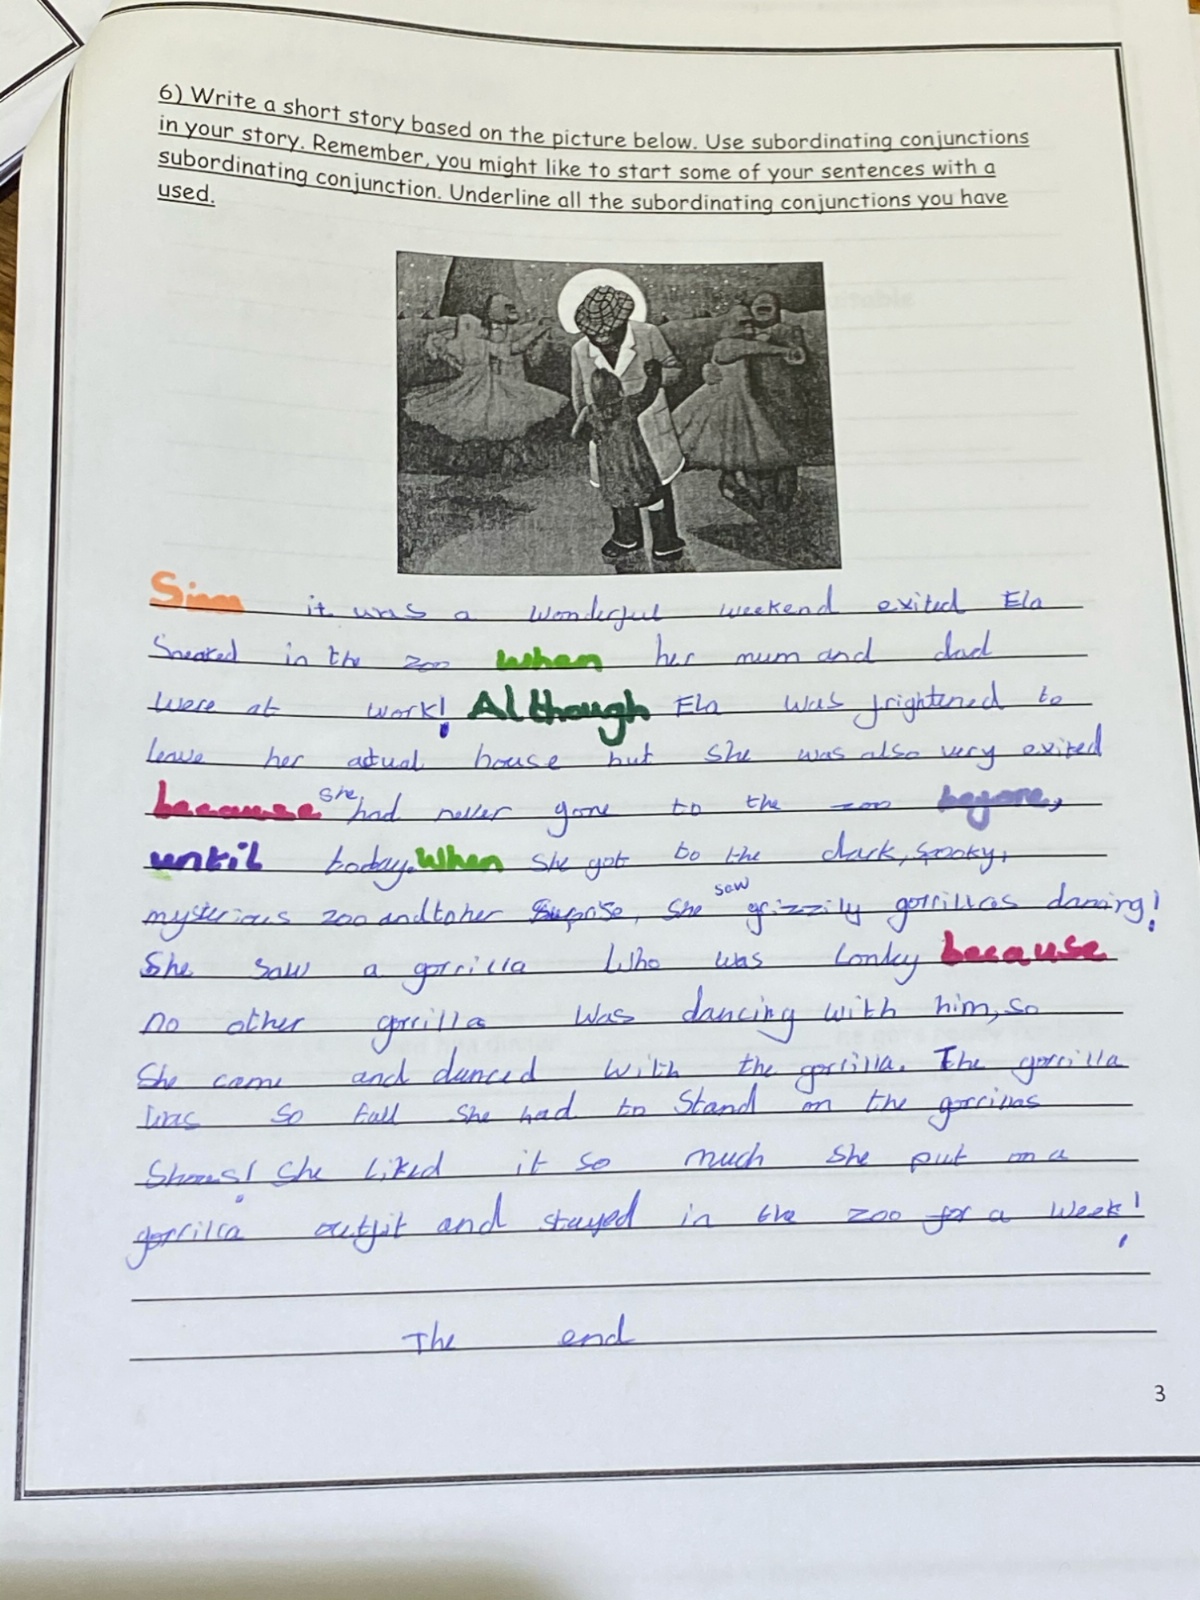 6) Write a short story based on the picture below. Use subordinating conjunctions
in your story. Remember, you might like to start some of your sentences with a
subordinating conjunction. Underline all the subordinating conjunctions you have
used.
it was a wonderful weekend exited Ela
Sneaked in the zoo when her mum and dad
were at work! Although Ela was frightened to
leave her actual house but she was also very exited
because she had never gone to the zoo before,
until today. When she got to the dark, spooky,
mysterious zoo and to her Suprise, she saw grizzily gorrillas dancing!
She saw a gorrilla who was Lonley because
no other gorrilla was dancing with him, so
She came and danced with the gorrilla. The gorrilla
was so tall she had to Stand on the gorrillas
Shoes! She liked it so much she put on a
gorrilla outfit and stayed in the zoo for a week!
The end
3